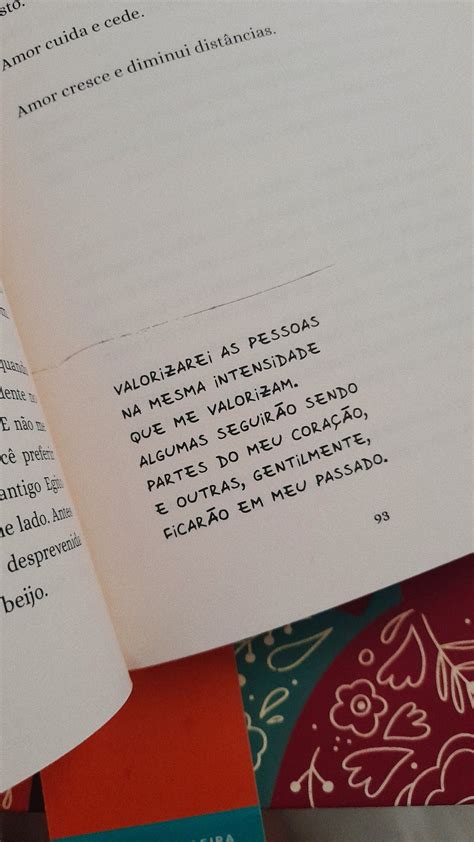 sto.
Amor cuida e cede.
Amor cresce e diminui distâncias.
VALORIZAREI AS PESSOAS
NA MESMA INTENSIDADE
QUE ME VALORIZAM.
ALGUMAS SEGUIRÃO SENDO
PARTES DO MEU CORAÇÃO,
E OUTRAS, GENTILMENTE,
FICARÃO EM MEU PASSADO.
93
quando
no
E não me
cê preferir
antigo Egito
e lado. Antes
desprevenida
beijo.
EIRA